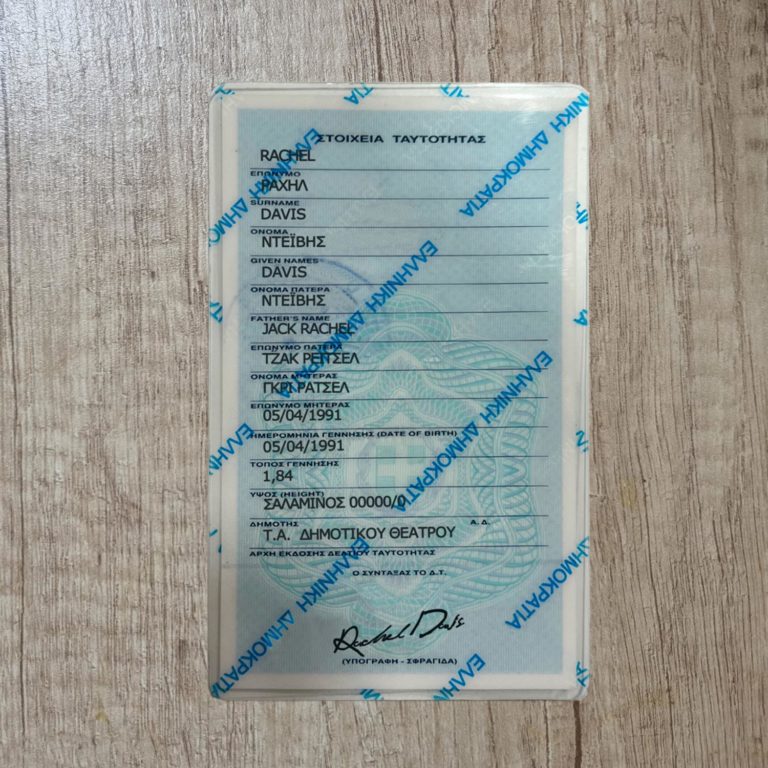 ΣΤΟΙΧΕΙΑ ΤΑΥΤΟΤΗΤΑΣ
RACHEL
ΕΠΩΝΥΜΟ
ΡΑΧΗΛ
SURNAME
DAVIS
ΟΝΟΜΑ
ΝΤΕΪΒΗΣ
GIVEN NAMES
DAVIS
ΟΝΟΜΑ ΠΑΤΕΡΑ
ΝΤΕΪΒΗΣ
FATHER'S NAME
JACK RACHEL
ΕΠΩΝΥΜΟ ΠΑΤΕΡΑ
ΤΖΑΚ ΡΕΙΤΣΕΛ
ΟΝΟΜΑ ΜΗΤΕΡΑΣ
ΓΚΡΙ ΡΑΤΣΕΛ
ΕΠΩΝΥΜΟ ΜΗΤΕΡΑΣ
05/04/1991
ΗΜΕΡΟΜΗΝΙΑ ΓΕΝΝΗΣΗΣ (DATE OF BIRTH)
05/04/1991
ΤΟΠΟΣ ΓΕΝΝΗΣΗΣ
1,84
ΥΨΟΣ (HEIGHT)
ΣΑΛΑΜΙΝΟΣ 00000/0
ΔΗΜΟΤΗΣ Α.Δ.
Τ.Α. ΔΗΜΟΤΙΚΟΥ ΘΕΑΤΡΟΥ
ΑΡΧΗ ΕΚΔΟΣΗΣ ΔΕΛΤΙΟΥ ΤΑΥΤΟΤΗΤΑΣ
Ο ΣΥΝΤΑΞΑΣ ΤΟ Δ.Τ.
Rachel Davis
(ΥΠΟΓΡΑΦΗ - ΣΦΡΑΓΙΔΑ)
ΕΛΛΗΝΙΚΗ ΔΗΜΟΚΡΑΤΙΑ
ΕΛΛΗΝΙΚΗ ΔΗΜΟΚΡΑΤΙΑ
ΕΛΛΗΝΙΚΗ ΔΗΜΟΚΡΑΤΙΑ
ΕΛΛΗΝΙΚΗ ΔΗΜΟΚΡΑΤΙΑ
ΕΛΛΗΝΙΚΗ ΔΗΜΟΚΡΑΤΙΑ